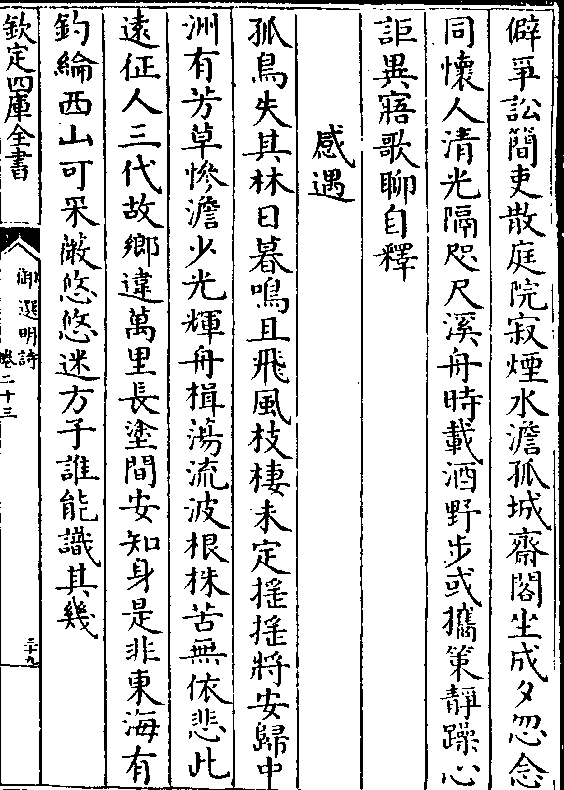 僻爭訟簡吏散庭院寂煙水澹孤城齋閣坐成夕忽念
同懷人清光隔咫尺溪舟時載酒野步或攜策靜躁心
詎異寤歌聊自釋
感遇
孤鳥失其林日暮鳴且飛風枝棲未定搖搖將安歸中
洲有芳草慘澹少光輝舟楫蕩流波根株苦無依悲此
遠征人三代故鄉違萬里長塗間安知身是非東海有
釣綸西山可采薇悠悠迷方子誰能識其幾
欽定四庫全書
御選明詩
卷二十三
二十九